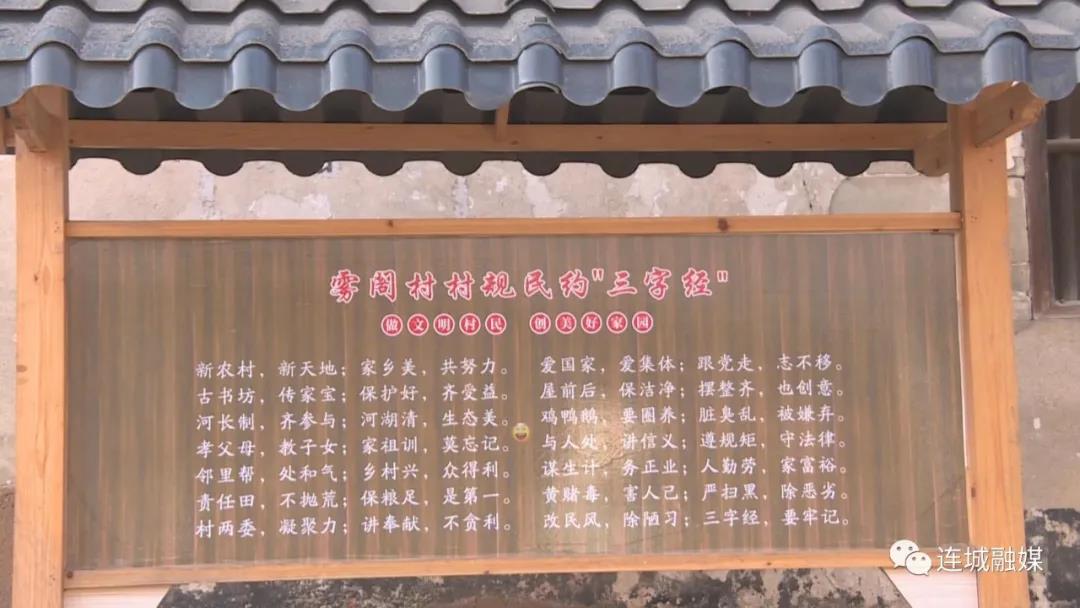 雾阁村村规民约"三字经"
做文明村民 创美好家园
新农村，新天地；家乡美，共努力。
古书坊，传家宝；保护好，齐受益。
河长制，齐参与；河湖清，生态美。
孝父母，教子女；家祖训，莫忘记。
邻里帮，处和气；乡村兴，众得利。
责任田，不抛荒；保粮足，是第一。
村两委，凝聚力；讲奉献，不贪利。
爱国家，爱集体；跟党走，志不移。
屋前后，保洁净；摆整齐，也创意。
鸡鸭鹅，要圈养；脏臭乱，被嫌弃。
与人处，讲信义；遵规矩，守法律。
谋生计，务正业；人勤劳，家富裕。
黄赌毒，害人己；严扫黑，除恶劣。
改民风，除陋习；三字经，要牢记。
连城融媒